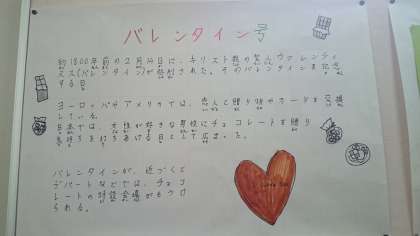 バレンタイン号
約1800年前の2月14日に、キリスト教の聖人ウァレンティ
ヌス(バレンタイン)が処刑された。そのバレンタインを記念
する日
ヨーロッパやアメリカでは、恋人と贈り物やカードを交換
している。
日本では、女性が好きな男性にチョコレートを贈り
気持ちを打ちあける日として広まった。
バレンタインが、近づくと
デパートなどでは、チョコ
レートの特設会場がもうけ
られる。